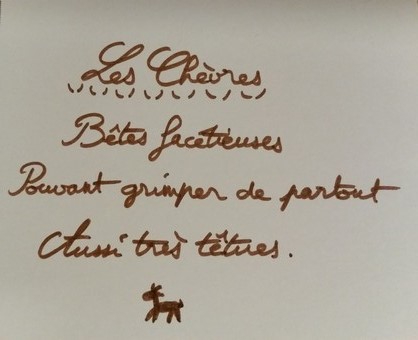 Les Chèvres
Bêtes facétieuses
Pouvant grimper de partout
Aussi très têtues.